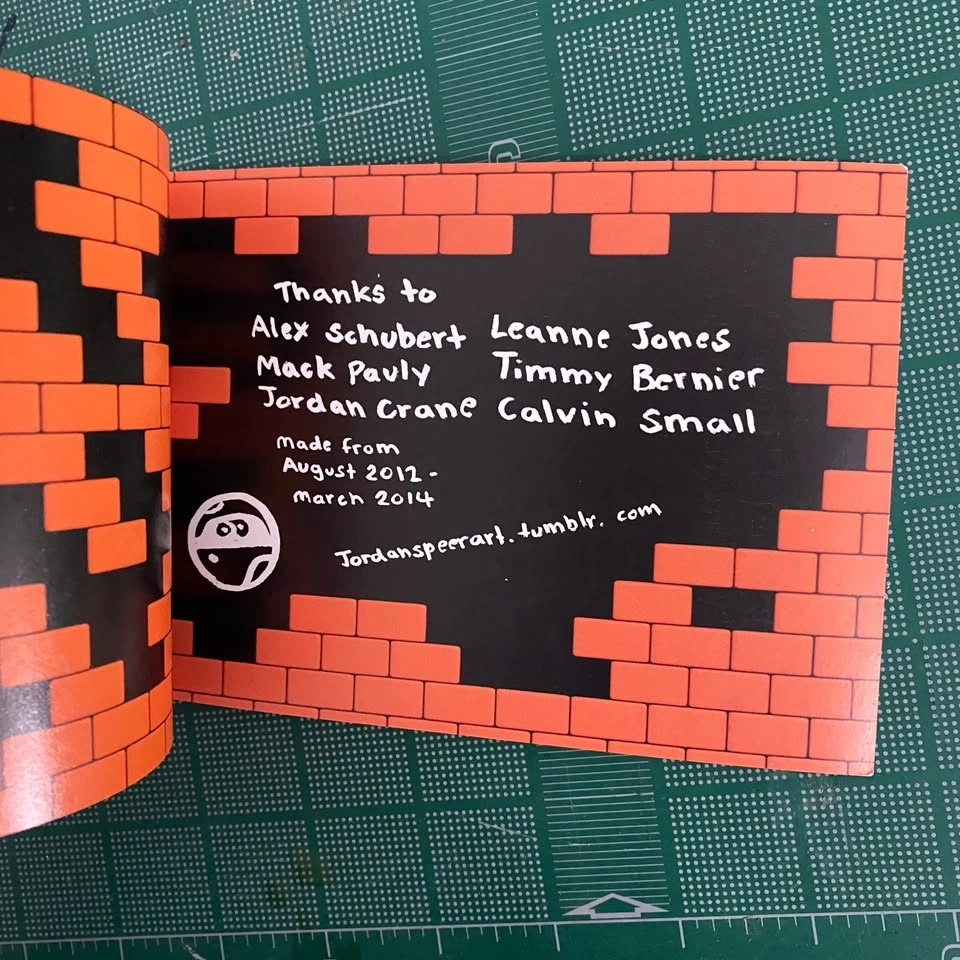 Thanks to
Alex Schubert Leanne Jones
Mack Pauly Timmy Bernier
Jordan Crane Calvin Small
made from
August 2012 -
march 2014
Jordanspeerart.tumblr.com